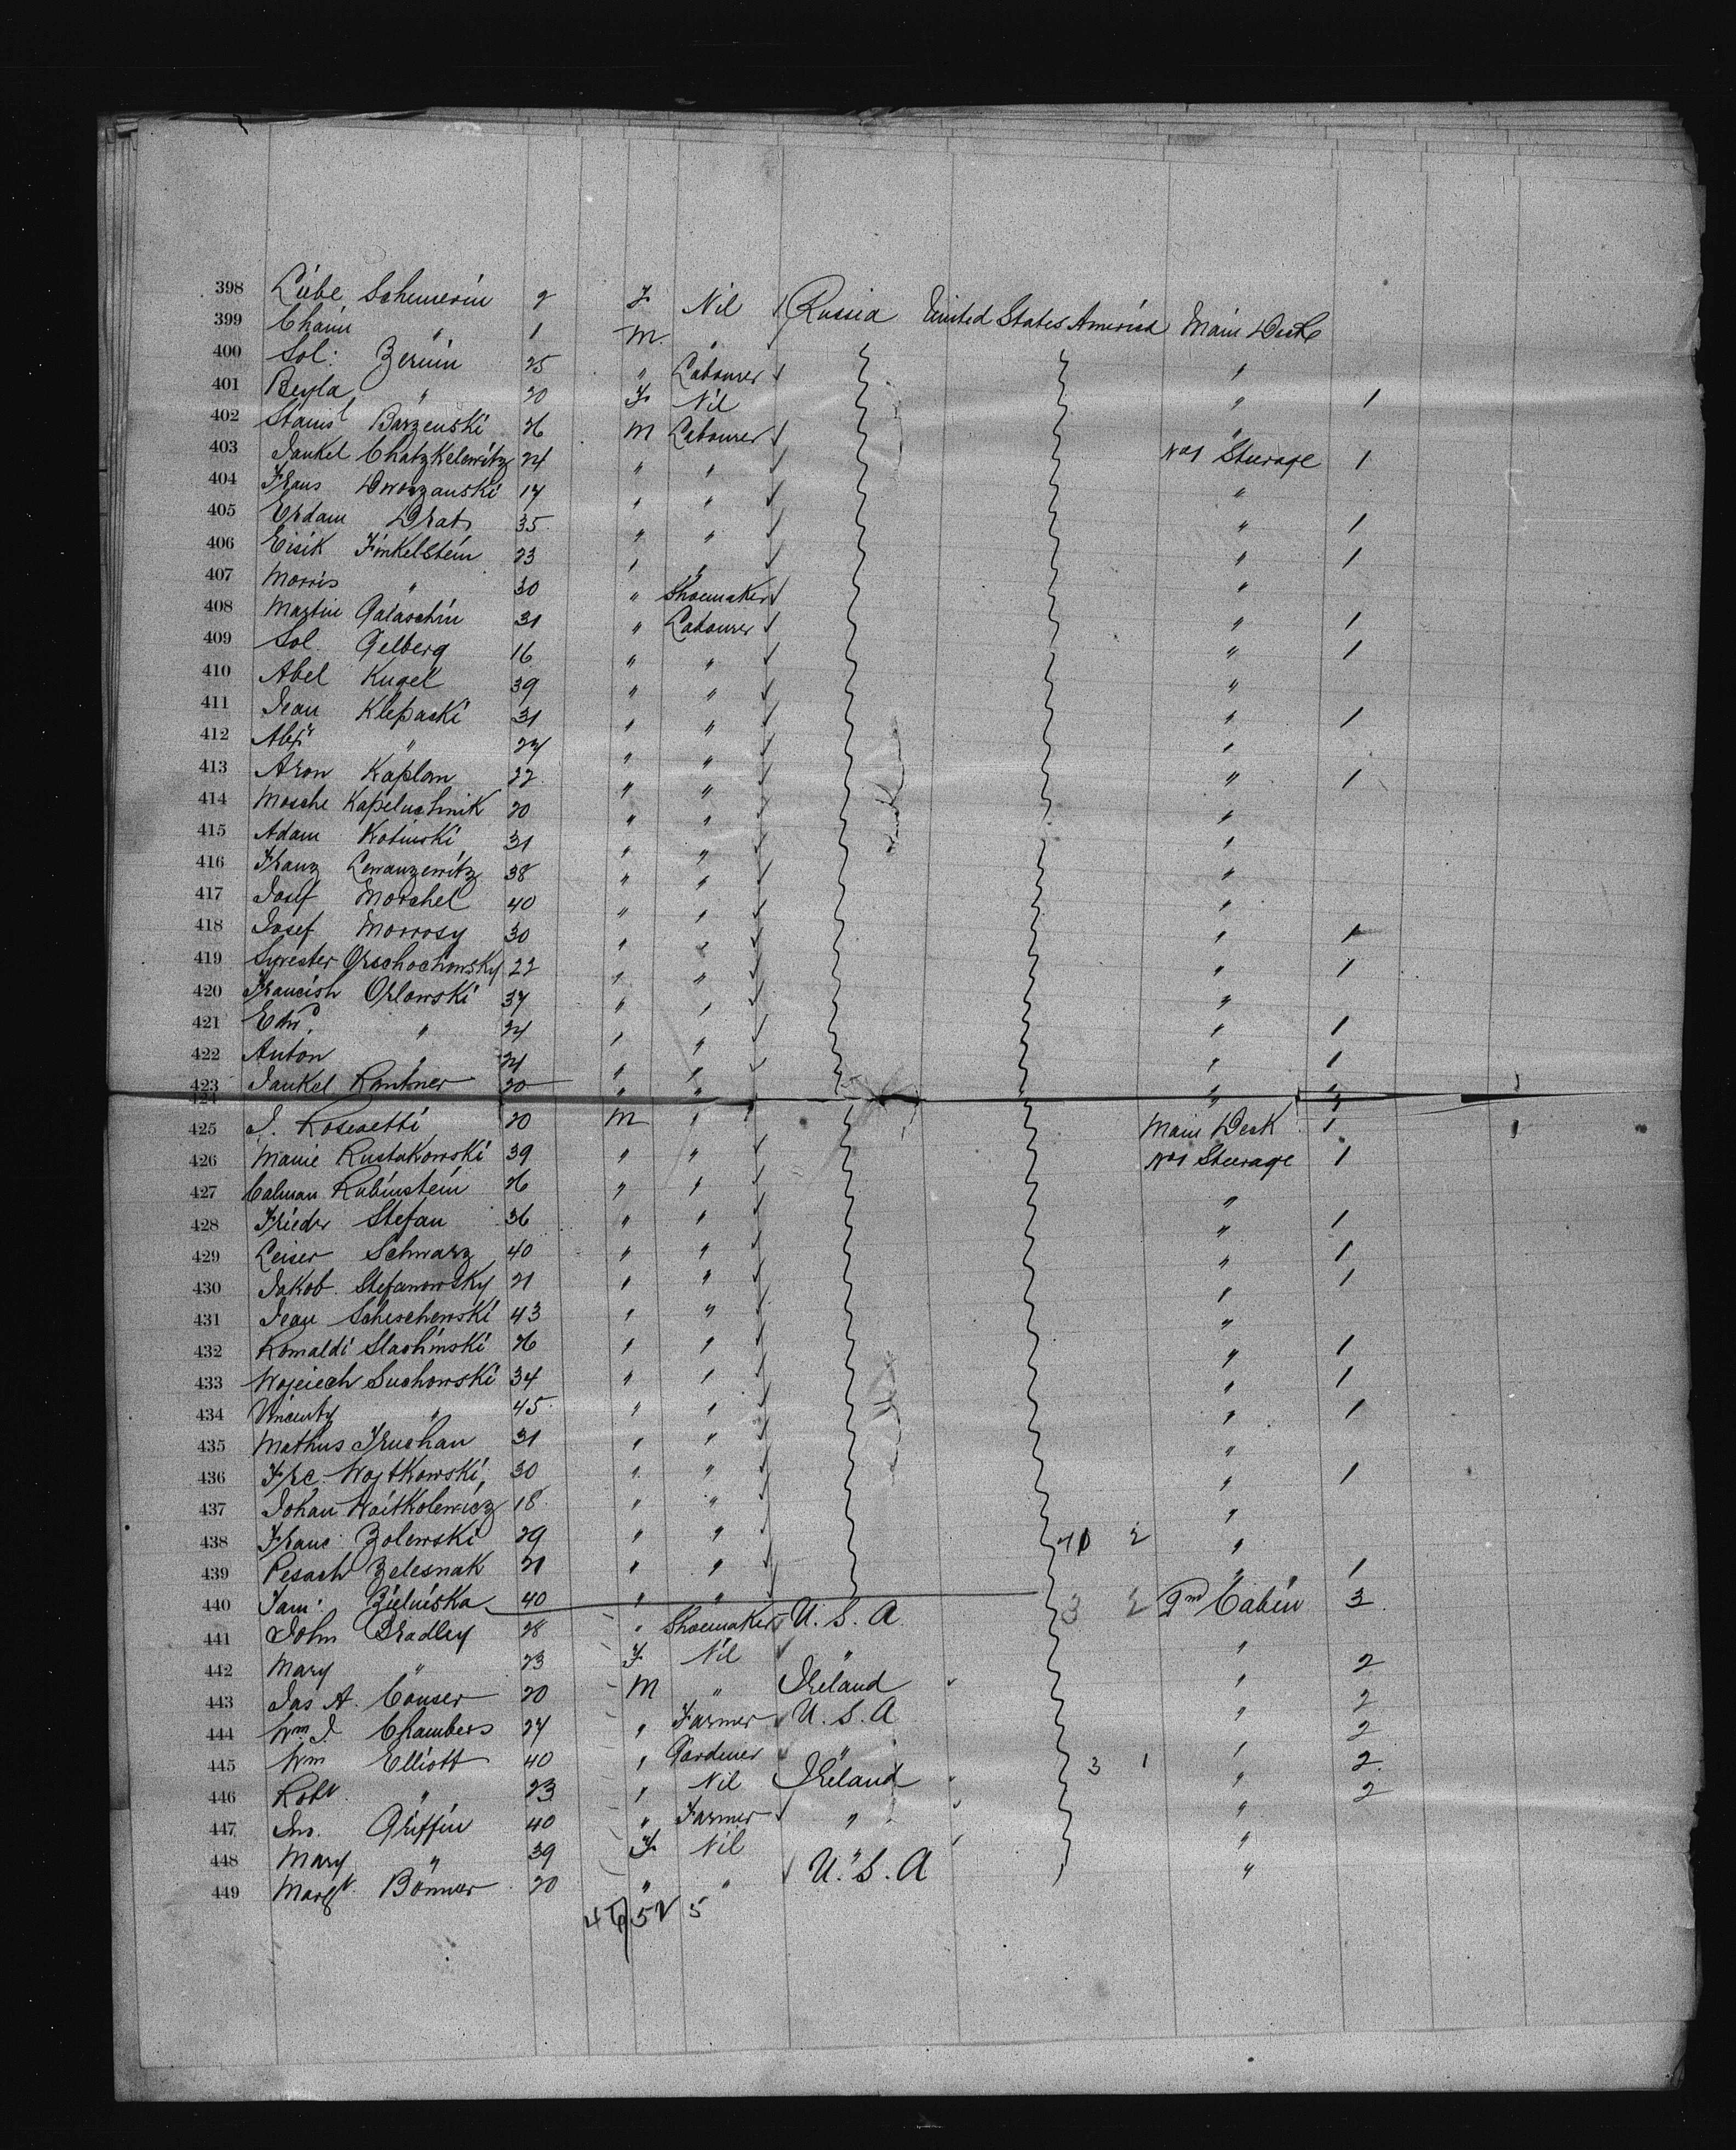 398 Liebe Schmerin 2 F Nil Russia United States America Main Deck
399 Chaim " 1 M "
400 Sol: Zermin 25 " Labourer "
401 Beyla " 20 F Nil " 1
402 Stanisl Barzenski 26 M Labourer "
403 Jankel Chatzkelewitz 24 " " No 1 Steerage 1
404 Frans Dworzanski 17 " " "
405 Erdam Drats 35 " " " 1
406 Eisik Finkelstein 23 " " " 1
407 Morris " 30 " Shoemaker "
408 Martin Galaschin 31 " Labourer " 1
409 Sol. Gelberg 16 " " " 1
410 Abel Kugel 39 " " "
411 Jean Klepacki 31 " " " 1
412 Alexr " 24 " " "
413 Aron Kaplan 22 " " " 1
414 Mosche Kapeluchnik 20 " " "
415 Adam Kotinski 31 " " "
416 Franz Lewanzewitz 38 " " "
417 Josef Morchel 40 " " "
418 Josef Morrosy 30 " " " 1
419 Sywester Orschochowsky 22 " " " 1
420 Francish Orlowski 37 " " "
421 Edwd. " 34 " " " 1
422 Anton " 24 " " " 1
423 Jankel Rantner 20 " " "
424
425 J. Rosevetti 20 M " Main Deck 1 1
426 Manie Rustakowski 39 " " No 1 Steerage 1
427 Calman Rubinstein 26 " " "
428 Frieder Stefan 36 " " " 1
429 Leiser Schwarz 40 " " " 1
430 Jakob Stefanowsky 21 " " " 1
431 Jean Scheschewski 43 " " "
432 Romaldi Slachinski 26 " " " 1
433 Wojciech Suchowski 34 " " " 1
434 Vincenty " 45 " " " 1
435 Mathus Truchan 31 " " "
436 Frc. Wojtkowski 30 " " " 1
437 Johan Waitkolewicz 18 " " "
438 Franc Zolewski 29 " " "
439 Pesach Zelesnak 21 " " " 1
440 Jam: Zielniska 40 " " 3 2nd Cabin 3
441 John Bradley 28 " Shoemaker U.S.A "
442 Mary " 23 F Nil " " 2
443 Jas A. Conser 20 M " Ireland " 2
444 Wm J Chambers 24 " Farmer U.S.A " 2
445 Wm Elliott 40 " Gardener " 3 1 " 2
446 Robt. " 23 " Nil Ireland " 2
447 Jno. Griffin 40 " Farmer " "
448 Mary " 39 F Nil " "
449 Margt. Bonner 20 " " U.S.A "